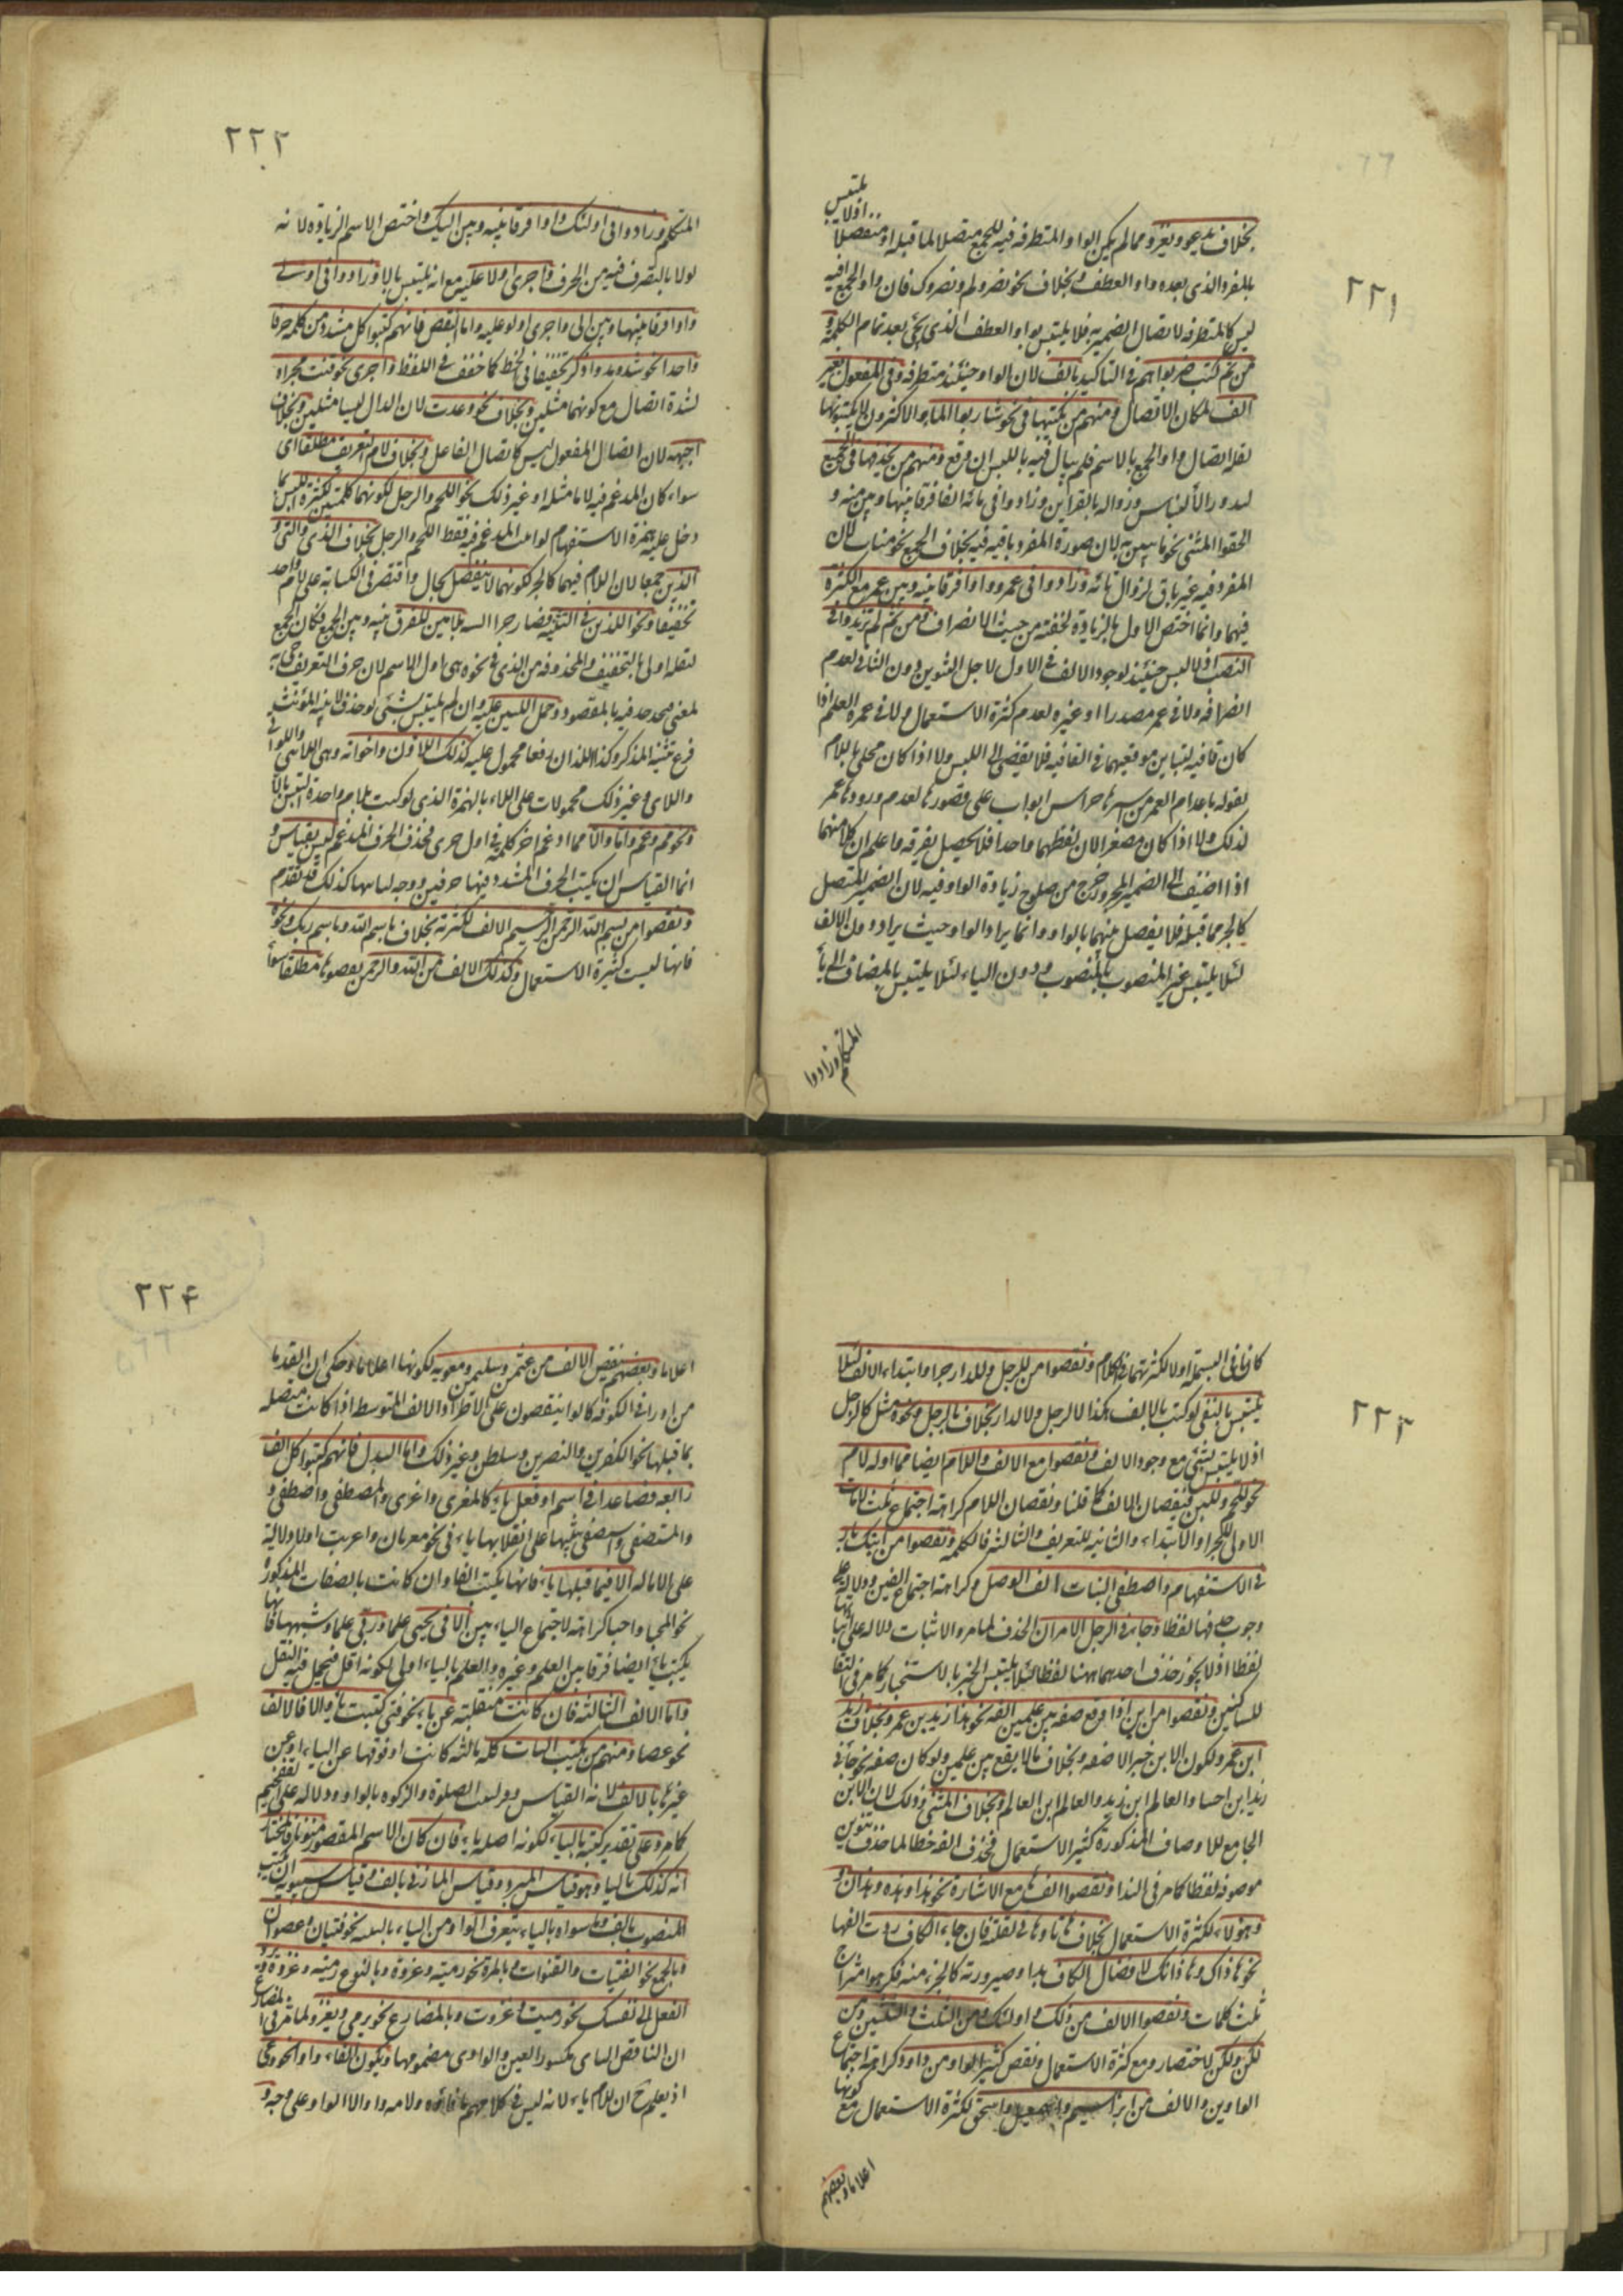 ٢٢١
يلتبس
بخلاف يدعو ويغزو مما لم يكن الواو المتطرفه فيه للجمع متصلا لما قبله او منفصلا اذ لا
بالمفرد الذي بعده واو العطف وبخلاف نحو نضروكم ونضروك فان واو الجمع فيه
ليس كالمتطرفه لاتصال الضمير به فلا يلتبس بواو العطف الذي يجئ بعد تمام الكلمة و
من ثم كتب ضربوا هم في التاكيد بالف لان الواو حينئذ متطرفه وفي المفعول بغير
الف لمكان الاتصال ومنهم من يكتبها في نحو شاربوا الماء والاكثرون لا يكتبونها
لقلة اتصال واو الجمع بالاسم فلم يبال فيه باللبس ان وقع ومنهم من يحذفها في الجميع
لندور الالتباس وزواله بالقراين وزادوا في مائه الفا فرقا بينها وبين منه و
الحقوا المثنى نحو مايتين به لان صورة المفرد باقيه فيه بخلاف الجمع نحو مئات لان
المفرد فيه غير باق لزوال تائه وزادوا في عمرو واوا فرقا بينه وبين عمر مع الكثرة
فيهما وانما اختص الاول بالزيادة لخفته من حيث الانصراف فمن ثم لم تزيدوا في
النصب اذ لا لبس حينئذ لوجود الالف في الاول لاجل التنوين دون الثاني لعدم
انصرافه ولا في عمر مصدرا او غيره لعدم كثرة الاستعمال ولا في عمرو العلم اذا
كان قافيه لتباين موقعيهما في القافيه فلا يفضى الى اللبس ولا اذا كان محلى باللام
لقوله باعدام العمر من اسيرها حراس ابواب على قصورها لعدم ورود عمر
لذلك ولا اذا كان مصغرا لان لفظهما واحد فلا يحصل تفرقه واعلم ان كلا منهما
اذا اضيف الى الضمير المجرور خرج من صلوح زيادة الواو فيه لان الضمير المتصل
كالجزء مما قبله فلا يفصل بينهما بالواو وانما يراد الواو حيث يراد دون الالف
لئلا يلتبس غير المنصوب بالمنصوب ودون الياء لئلا يلتبس بالمضاف الى ياء
المتكلم وزادوا
٢٢٢
المتكلم وزادوا في اولئك واوا فرقا بينه وبين اليك واختص الاسم الزيادة لانه
اولا بالتصرف فيه من الحرف واجرى اولا عليه مع انه يلتبس بالا وزادوا في اولى
واوا فرقا بينها وبين الى واجرى اولو عليه واما النقص فانهم كتبوا كل مشدد من كلمه حرفا
واحدا نحو شد ومد وادكر تخفيفا في الخط كما خفف في اللفظ واجرى نحو قتت مجراه
لشدة اتصال مع كونهما مثلين وبخلاف نحو وعدت لان الدال ليسا مثلين وبخلاف
اجبهه لان اتصال المفعول ليس كاتصال الفاعل وبخلاف لام التعريف مطلقا اى
سواء كان المدغم فيه لاما مثله او غير ذلك نحو اللحم والرجل لكونهما كلمتين لكثرة اللبس بما
دخل عليه همزة الاستفهام لو كتب المدغم فيه فقط اللحم والرجل بخلاف الذي والتي و
الذين جمعا لان اللام فيهما كالجزء لكونهما لا ينفصل بحال واقتصر في الكتابة على لام واحد
تخفيفا ونحو اللذين في التثنيه نصبا وجرا لسه بلامين للفرق بينه وبين الجمع فكان الجمع
لثقله اولى بالتخفيف والمحذوفه من الذي نحوه هى اول الاسم لان حرف التعريف جئ به
لمعنى فحذفه بالمقصود وحمل اللتين عليه وان لم يلتبس بشئ لو حذف لانه المؤنث
فرع تثنيه المذكر وكذا اللذان رفعا محمول عليه كذلك اللاؤن واخواته وهى اللائى واللواتى
واللاى وغير ذلك محمولات على اللاء بالهمزة الذى لو كتبت بلام واحدة لتلبس بالا
ونحو مم وعم واما والا مما ادغم اخر كلمة في اول اخرى فحذف الحرف المدغم ليس بقياس و
انما القياس ان يكتب الحرف المشدد فيها حرفين ووجه لباسها كذلك قد تقدم
ونقصوا من بسم الله الرحمن الرحيم الالف لكثرته بخلاف باسم الله وباسم ربك ونحوه
فانها ليست كثيرة الاستعمال وكذلك الالف من الله والرحمن نقصوها مطلقا سواء
٢٢٣
كانا في البسملة او لا لكثرتهما في الكلام ونقصوا من للرجل وللدار جرا وابتداء الالف لئلا
يلتبس بالنفى لو كتب بالالف هكذا لالرجل ولالدار بخلاف بالرجل ونحوه مثل كالرجل
اذ لا يلتبس بشئ مع وجود الالف ونقصوا مع الالف واللام ايضا مما اوله لام
نحو للحم وللبن فنقصان الالف كما قلنا ونقصان اللام كراهة اجتماع ثلث لامات
الاولى للجر او الابتداء والثانيه للتعريف والثالثه فاء الكلمه ونقصوا من ابنك بار
في الاستفهام واصطفى البنات الف الوصل وكراهة اجتماع الفين ودلالة على
وجوب حذفها لفظا وجاء في الرجل الامران الحذف لما مر والاثبات دلاله على اثباتها
لفظا اذ لا يجوز حذف احدهما ههنا لفظا لئلا يلتبس الخبر بالاستخبار كما مر في التقاء
للساكنين ونقصوا من ابن اذا وقع صفه بين علمين الفه نحو هذا زيد بن عمرو بخلاف زيد
ابن عمرو لكون الابن خبرا لا صفه وبخلاف ما لا يقع بين علمين ولو كان صفه نحو جاءني
زيد ابن اخينا والعالم ابن زيد والعالم ابن العالم وبخلاف المثنى وذلك لان الابن
الجامع للاوصاف المذكورة كثير الاستعمال فحذف الفه خطا لما حذف تنوين
موصوفه لفظا كما مر في النداء ونقصوا الف ها مع الاشارة نحو هذا وهذه وهذان و
وهؤلاء لكثرة الاستعمال بخلاف هاتا وهاتى لقلته فان جاء الكاف ردت الفها
نحو هاذاك وهاذانك لاتصال الكاف بذا وصيرورته كالجزء منه فكرهوا امتزاج
ثلث كلمات ونقصوا الالف من ذلك واولئك ومن الثلث والثلثين ومن
لكن ولكن لاختصار ومع كثرة الاستعمال ونقص كثير الواو من داود كراهة اجتماع
الواوين والالف من ابراهيم واسمعيل واسحق لكثرة الاستعمال مع كونها
اعلاما وبعضهم
٢٢٤
اعلاما وبعضهم ينقص الالف من عثمن وسليمن ومعويه لكونها اعلاما وحكى ان القدماء
من اوراق الكوفه كانوا ينقصون على الاطراد الالف المتوسط اذا كانت متصله
بما قبلها نحو الكفرين والنصرين وسلطن وغير ذلك واما البدل فانهم كتبوا كل الف
رابعه فصاعدا في اسم او فعل ياء كالمغزى واغزى والمصطفى واصطفى و
والمستصفى واستصفى تنبيها على انقلابها ياء في نحو معزيان واغزيت او لدلالة
على الاماله الا فيما قبلها ياء فانها يكتب الفا وان كانت بالصفات المذكورة
نحو المحيا واحيا كراهة لاجتماع الياءين الا في يحيى علما وريى علما وشبههما فانها
يكتب ياء ايضا فرقا بين العلم وغيره والعلم بالياء اولى لكونه اقل فيحمل فيه الثقل
واما الالف الثالثه فان كانت منقلبة عن ياء نحو فتى كتبت ياء والا فالالف
نحو عصا ومنهم من يكتب الباب كله بالالف كانت او فوقها عن الياء او عن
غيرها بالالف لانه القياس وقد كتبت الصلوة والزكوه بالواو دلاله على التفخيم
كما مر وعلى تقدير كتبه بالياء لكونه اصله ياء فان كان الاسم المقصور منونا فالمختار
انه كذلك بالياء وهو قياس المبرد وقياس المازني بالف وقياس سيبويه ان يكتب
المنصوب بالف وما سواه بالياء ويتعرف الواو من الياء بالتثنيه نحو فتيان وعصوان
وبالجمع نحو الفتيات والقنوات وبالمرة نحو رميته وغزوة وبالنوع رميه وغزوة وبرد
الفعل الى نفسك نحو رميت وغزوت وبالمضارع نحو يرمى ويغزو لما مر في المضارع
ان الناقص اليائى مكسور العين والواوى مضمومها وبكون الفاء واوا نحو وعى
اذ يعلم ح ان اللام ياء لانه ليس في كلامهم ما فاؤه ولامه واو الا الواو على وجه و